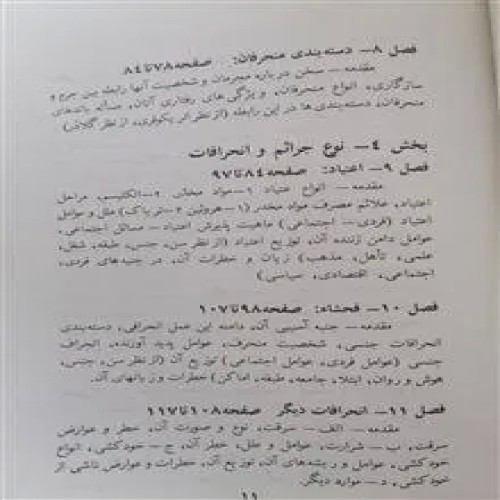 فصل ۸ـ دسته‌بندی منحرفان: صفحه۷۸تا۸۴
مقدمه ـ سخن درباره مجرمان و شخصیت آنها رابطه بین جرم و
سازگاری، انواع منحرفان، ویژگی‌های رفتاری آنان، مسأله باندهای
منحرفان، دسته‌بندی‌ها در این رابطه (ازنظر اثر پکوفری، ازنظر گلان)
بخش ٤ـ نوع جرائم و انحرافات
فصل ۹ـ اعتیاد: صفحه۸٤تا۹۷
مقدمه ـ انواع عتیاد ۱ـ مواد مخدر ۲ـ الکلیسم، مراحل
اعتیاد، علائم مصرف مواد مخدر (۱ـ هروئین ۲ـ تریاک) علل و عوامل
اعتیاد (فردی ـ اجتماعی) ماهیت پذیرش اعتیاد ـ مسائل اجتماعی،
عوامل دامن زننده آن، توزیع اعتیاد (ازنظر سن، جنس، طبقه، شغل،
علمی، تأهل، مذهب) زیان و خطرات آن، در جنبه‌های فردی،
اجتماعی، اقتصادی، سیاسی)
فصل ۱۰ـ فحشاء: صفحه۹۸تا۱۰۷
مقدمه ـ جنبه آسیبی آن، دامنه این عمل انحرافی، دسته‌بندی
انحرافات جنسی، شخصیت منحرف، عوامل پدید آورنده، انحراف
جنسی (عوامل فردی، عوامل اجتماعی) توزیع آن (ازنظر سن، جنس،
هوش و روان، ابتلا، جامعه، طبقه، اماکن) خطرات و زیانهای آن.
فصل ۱۱ـ انحرافات دیگر صفحه۱۰۸تا۱۱۷
مقدمه ـ الف ـ سرقت، نوع و صورت آن، خطر و عوارض
سرقت، ب ـ شرارت، عوامل و علل، خطر آن، ج ـ خودکشی، انواع
خودکشی، عوامل و ریشه‌های آن، توزیع آن، خطرات و عوارض ناشی از
خودکشی، د ـ موارد دیگر.
۱۱